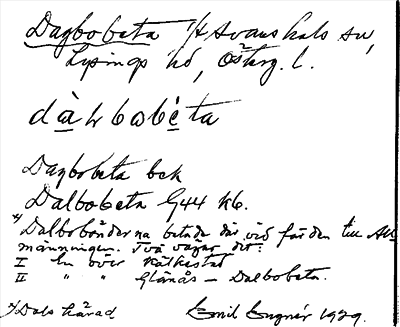 Dagbobeta 1/4 Svanshals sn,
Lysings hd, Österg. l.
dàḷbωbéta
Dagbobeta bek
Dalbobeta G44 Kb.
x) Dalbobönderna betade där vid färden till Al-
männingen. Två vägar dit:
I En över Kälkestad
II " " Glänås – Dalbobeta.
x) Dals härad Emil 1929.